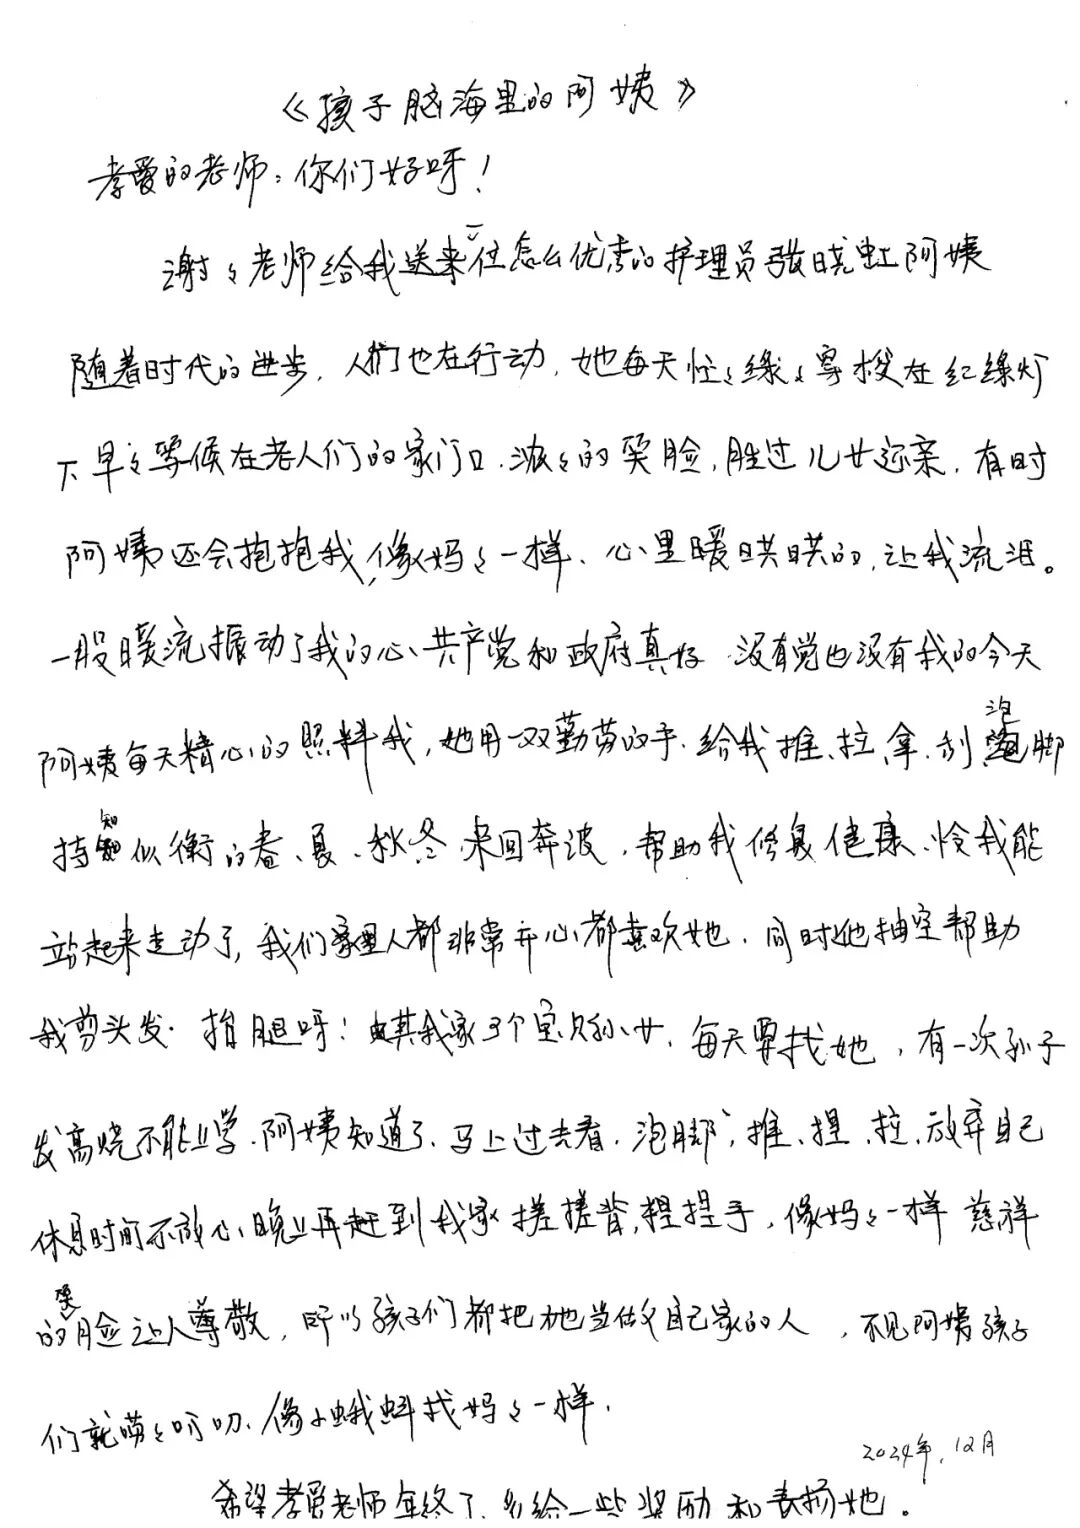 《孩子脑海里的阿姨》
孝爱的老师：你们好呀！
谢々老师给我送来一位怎么优秀的护理员张晓虹阿姨
随着时代的进步，人们也在行动，她每天忙々绿々穿梭在红绿灯
下早々等候在老人们的家门口、浓々的笑脸，胜过儿女还亲，有时
阿姨还会抱抱我，像妈々一样、心里暖哄哄的，让我流泪。
一股暖流振动了我的心共产党和政府真好 没有党也没有我的今天
阿姨每天精心的照料我，她用一双勤劳的手、给我推、拉、拿、刮泡脚
持知似衡的春、夏、秋冬来回奔波，帮助我修复健康、怜我能
站起来走动了，我们家里人都非常开心都喜欢她、同时她抽空帮助
我剪头发、捎腿呀！ 其我家3个宝贝孙女，每天要找她，有一次孙子
发高烧不能上学、阿姨知道了、马上过去看，泡脚、推、捏、拉、放弃自己
休息时间不放心、晚上再赶到我家搓搓背，捏捏手，像妈々一样 慈祥
的笑脸让人尊敬，所以孩子们都把她当做自己家的人，不见阿姨孩子
们就唠々叨叨、像小蛾蚪找妈々一样，
2024年，12月
希望孝爱老师年终了、多给一些奖励和表扬她。